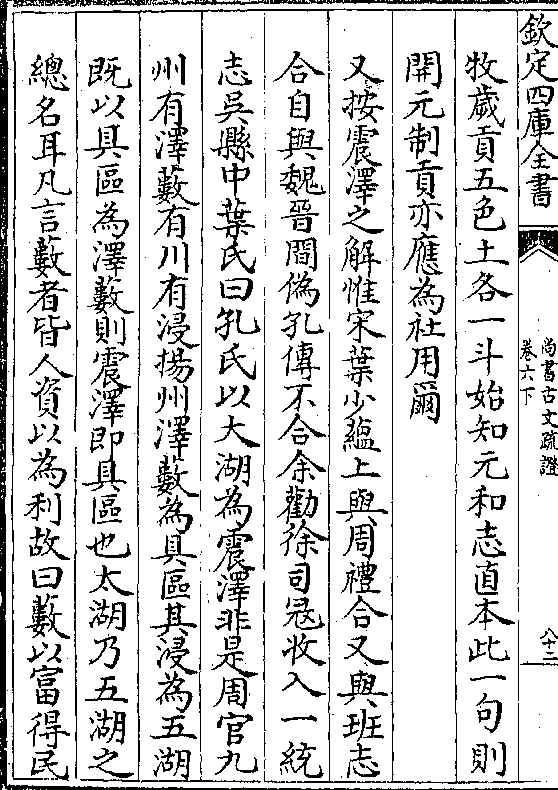 欽定四庫全書
尚書古文疏證
卷六下
八十二
牧歲貢五色土各一斗始知元和志直本此一句則
開元制貢亦應為社用爾
又按震澤之解惟宋葉少蘊上與周禮合又與班志
合自與魏晉間偽孔傳不合余勸徐司冦收入一統
志吳縣中葉氏曰孔氏以大湖為震澤非是周官九
州有澤藪有川有浸揚州澤藪為具區其浸為五湖
既以具區為澤藪則震澤即具區也太湖乃五湖之
總名耳凡言藪者皆人資以為利故曰藪以富得民